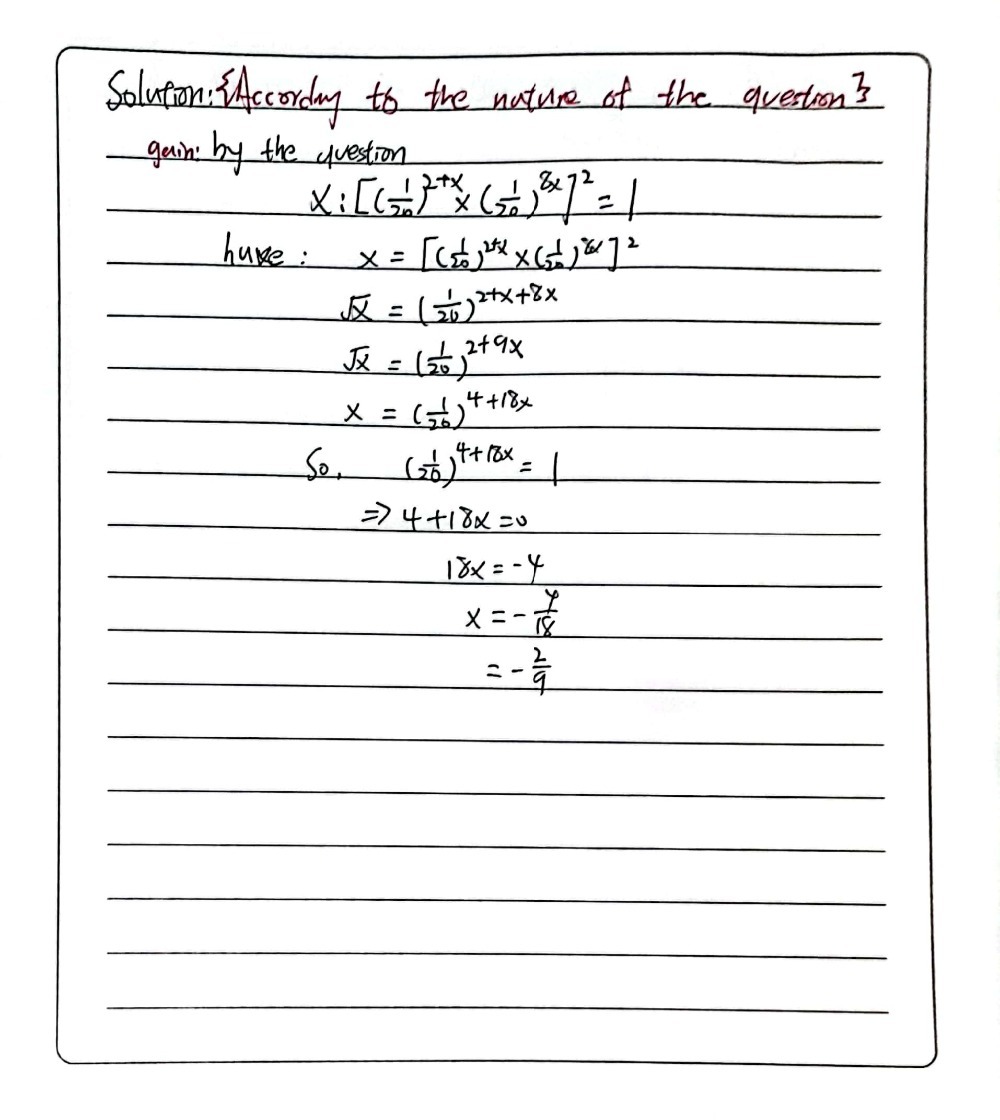 Solution:{According to the nature of the question}
gain: by the question
x:[(1/20)^2+x × (1/20)^8x]^2 = 1
have: x = [(1/20)^2+x × (1/20)^8x]^2
√x = (1/20)^2+x+8x
√x = (1/20)^2+9x
x = (1/20)^4+18x
So, (1/20)^4+18x = 1
=> 4+18x=0
18x=-4
x=-4/18
=-2/9